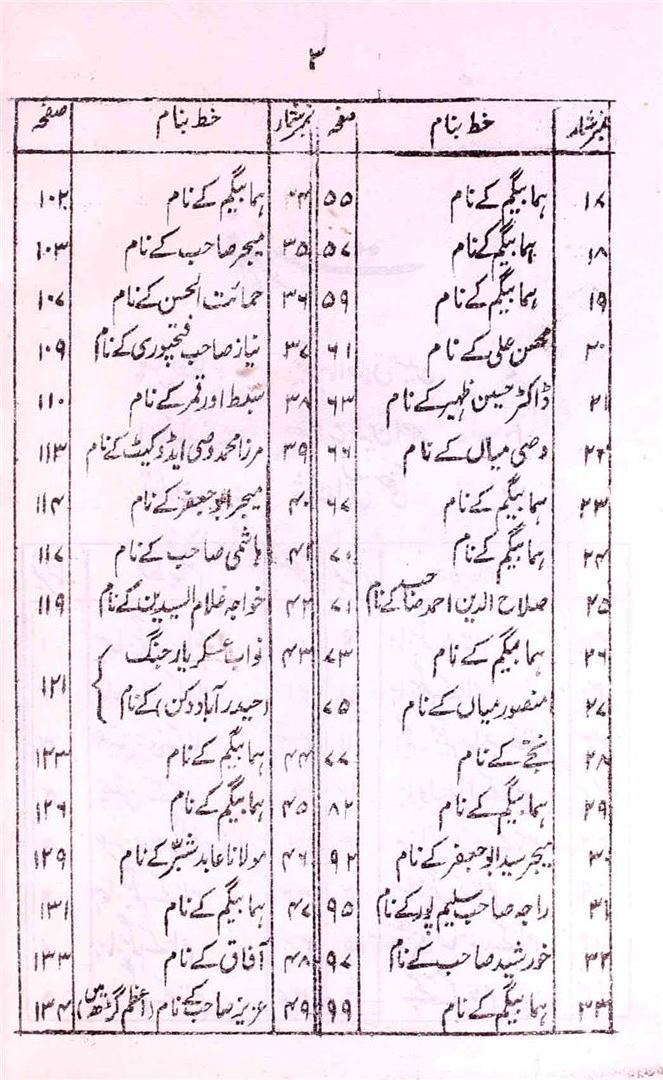 ۳
نمبر شمار خط بنام صفحہ نمبر شمار خط بنام صفحہ
۱۷ ہما بیگم کے نام ۵۵ ۳۴ ہما بیگم کے نام ۱۰۲
۱۸ ہما بیگم کے نام ۵۷ ۳۵ میجر صاحب کے نام ۱۰۳
۱۹ ہما بیگم کے نام ۵۹ ۳۶ حمائت الحسن کے نام ۱۰۷
۲۰ محسن علی کے نام ۶۱ ۳۷ نیاز صاحب فتحپوری کے نام ۱۰۹
۲۱ ڈاکٹر حسین ظہیر کے نام ۶۳ ۳۸ سبط اور قمر کے نام ۱۱۰
۲۲ وصی میاں کے نام ۶۶ ۳۹ مرزا محمد وصی ایڈوکیٹ کے نام ۱۱۳
۲۳ ہما بیگم کے نام ۶۷ ۴۰ میجر ابو جعفر کے نام ۱۱۴
۲۴ ہما بیگم کے نام ۷۰ ۴۱ ہاشمی صاحب کے نام ۱۱۷
۲۵ صلاح الدین احمد صاحب کے نام ۷۱ ۴۲ خواجہ غلام السیدین کے نام ۱۱۹
۲۶ ہما بیگم کے نام ۷۳ ۴۳ نواب عسکر یار جنگ
۲۷ منصور میاں کے نام ۷۵ (حیدرآباد دکن) کے نام ۱۲۱
۲۸ نجّے کے نام ۷۷ ۴۴ ہما بیگم کے نام ۱۲۳
۲۹ ہما بیگم کے نام ۸۲ ۴۵ ہما بیگم کے نام ۱۲۶
۳۰ میجر سید ابو جعفر کے نام ۹۲ ۴۶ مولانا عابد شبّر کے نام ۱۲۹
۳۱ راجہ صاحب سلیم پور کے نام ۹۵ ۴۷ ہما بیگم کے نام ۱۳۱
۳۲ خورشید صاحب کے نام ۹۷ ۴۸ آفاق کے نام ۱۳۳
۳۳ ہما بیگم کے نام ۹۹ ۴۹ عزیز صاحب کے نام (اعظم گڑھ میں) ۱۳۴